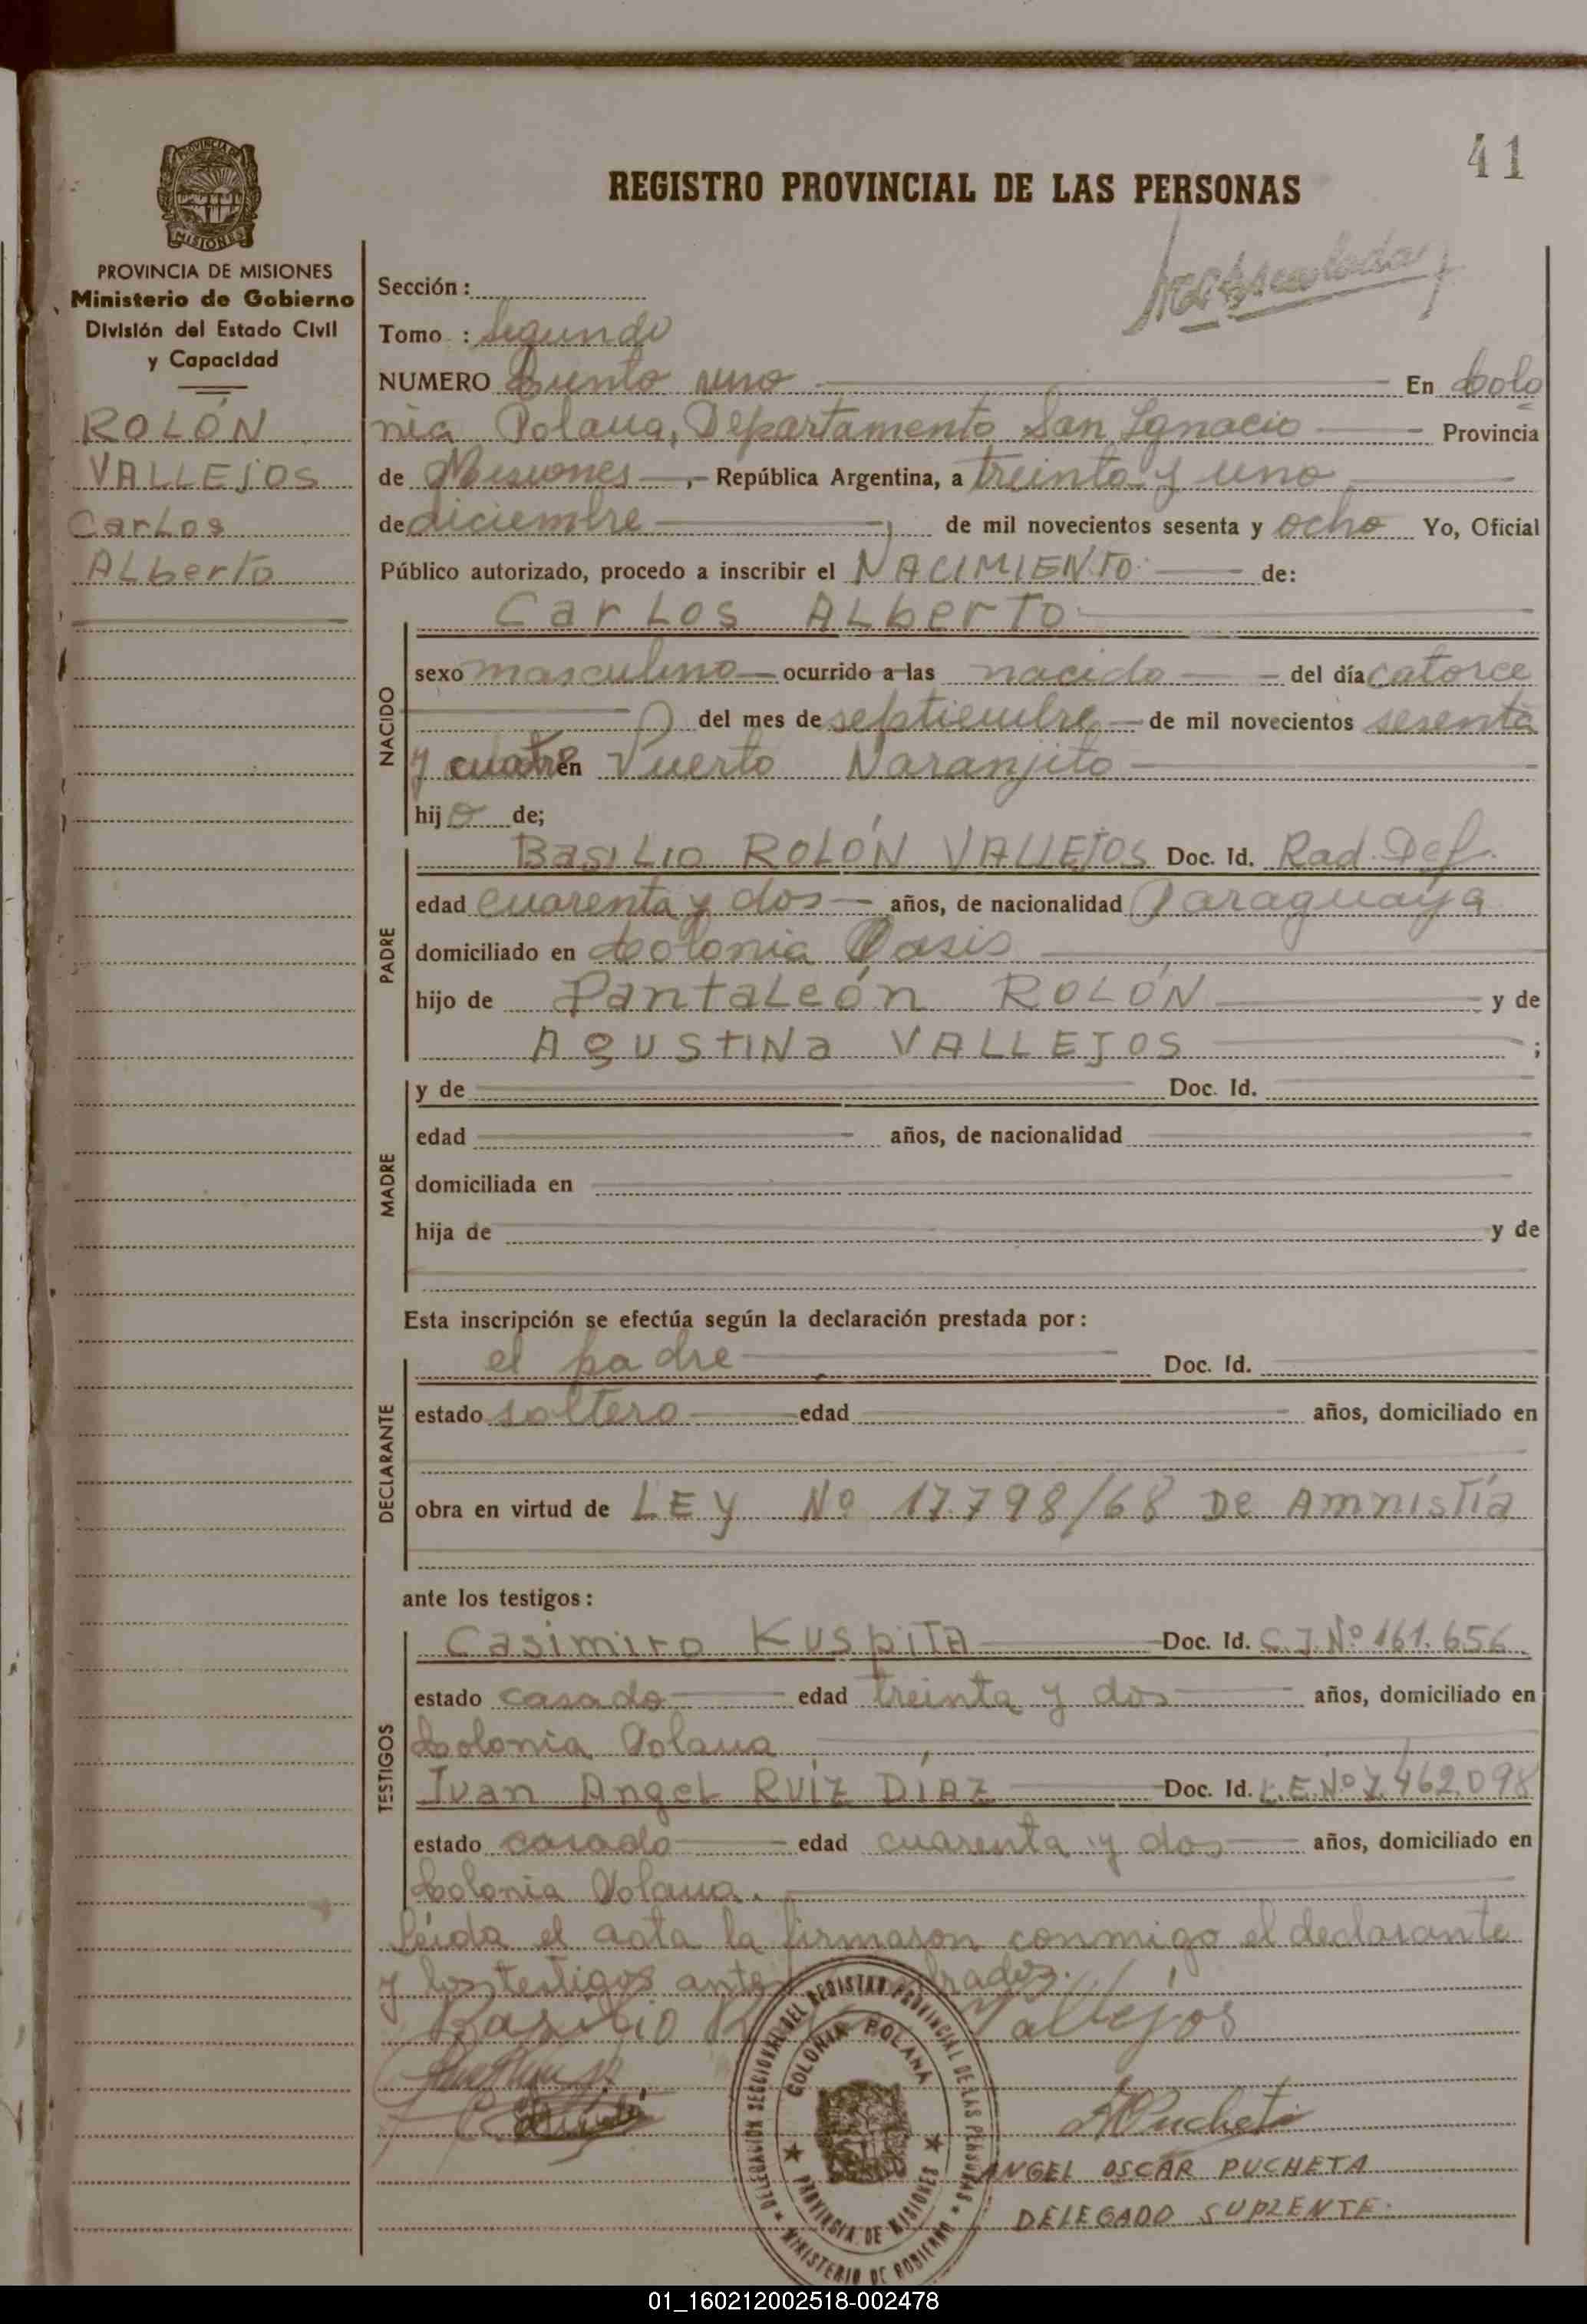 41
REGISTRO PROVINCIAL DE LAS PERSONAS
PROVINCIA DE MISIONES
MISIONES
PROVINCIA DE MISIONES
Ministerio de Gobierno
División del Estado Civil
y Capacidad
ROLÓN
VALLEJOS
Carlos
Alberto
Sección:
Tomo : Segundo
NUMERO Ciento uno En Colo
nia Polana, Departamento San Ignacio Provincia
de Misiones, República Argentina, a treinta y uno
de diciembre, de mil novecientos sesenta y ocho Yo, Oficial
Público autorizado, procedo a inscribir el NACIMIENTO de:
Carlos Alberto
NACIDO
sexo masculino ocurrido a las nacido del día catorce
del mes de septiembre de mil novecientos sesenta
y cuatro en Puerto Naranjito
hijo de;
PADRE
Basilio ROLÓN VALLEJOS Doc. Id. Rad. Def.
edad cuarenta y dos años, de nacionalidad Paraguaya
domiciliado en Colonia Oasis
hijo de Pantaleón ROLÓN y de
Agustina VALLEJOS ;
MADRE
y de Doc. Id.
edad años, de nacionalidad
domiciliada en
hija de y de
Esta inscripción se efectúa según la declaración prestada por:
DECLARANTE
el padre Doc. Id.
estado soltero edad años, domiciliado en
obra en virtud de LEY Nº 17.798/68 De Amnistía
ante los testigos:
TESTIGOS
Casimiro KUSPITA Doc. Id. C.I. Nº 161.656
estado casado edad treinta y dos años, domiciliado en
Colonia Polana
Juan Angel RUÍZ DÍAZ Doc. Id. L.E. Nº 7.462.098
estado casado edad cuarenta y dos años, domiciliado en
Colonia Polana.
Leída el acta la firmaron conmigo el declarante
y los testigos ante brados.
Basilio R Vallejos
DELEGACIÓN SECCIONAL DEL REGISTRO PROVINCIAL DE LAS PERSONAS
COLONIA POLANA
PROVINCIA DE MISIONES
MINISTERIO DE GOBIERNO
APucheta
ANGEL OSCAR PUCHETA
DELEGADO SUPLENTE
01_160212002518-002478